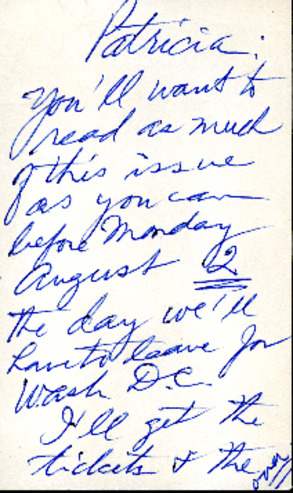 Patricia:
You'll want to
read as much
of this issue
as you can
before Monday
August 2
the day we'll
have to leave for
Wash D.C.
I'll get the
tickets & the